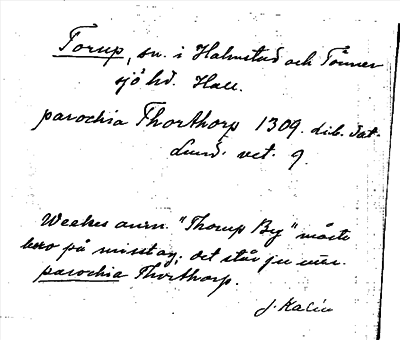 Torup, sn. i Halmstad och Tönner
sjö hd. Hall.
parochia Thorthorp 1309. lib. dat.
Lund. vet. 9.
Weekes anm. "Thorup By" måste
bero på misstag; det står ju
parochia Thorthorp.
J. Kalén